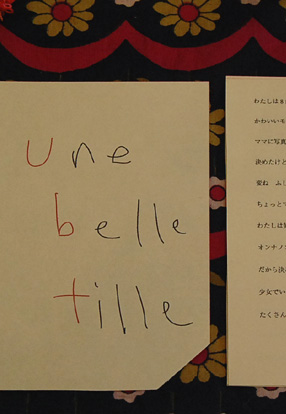 Une
belle
tille
わたしは
かわいいモ
ママに写真
決めたけど
ちょっとで
わたしは
オンナノ
だから決
少女でい
たくさん